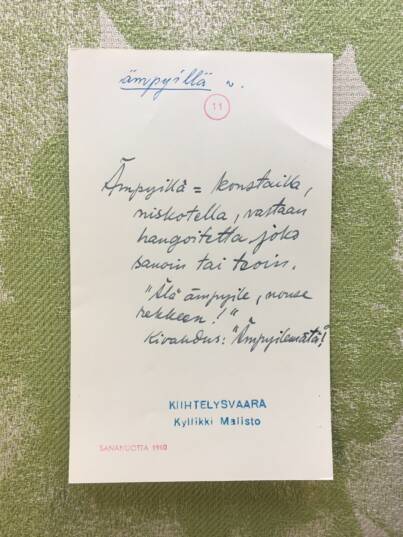 ämpyillä v.
11
Ämpyillä = konstailla,
niskotella, vastaan
hangoitetta joko
sanoin tai teoin.
"Älä ämpyile, nouse
rekkeen!"
Kivahdus: "Ämpyilemätä!"
KIIHTELYSVAARA
Kyllikki Malisto
SANANUOTTA 1960